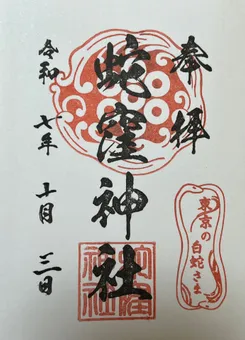 奉拝
東京の白蛇さま
蛇窪神社
蛇窪神社
令和七年十月三日